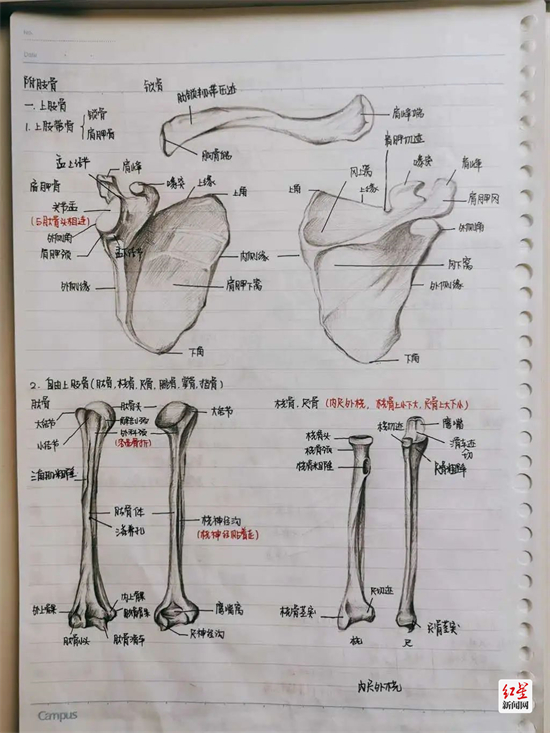 No.
Date
附肢骨
一.上肢骨
1.上肢带骨
锁骨
肩胛骨
锁骨
肋锁韧带压迹
肩峰端
胸骨端
肩胛骨
盂上结节
肩峰
喙突
上缘
上角
关节盂
(与肱骨头相连)
外侧角
肩胛颈
盂下结节
外侧缘
内侧缘
肩胛下窝
下角
肩胛切迹
喙突
肩峰
冈上窝
上角
上缘
肩胛冈
外侧角
冈下窝
外侧缘
下角
2.自由上肢骨(肱骨,桡骨,尺骨,腕骨,掌骨,指骨)
肱骨
大结节
小结节
肱骨头
解剖颈
外科颈
(容易骨折)
大结节
三角肌粗隆
肱骨体
滋养孔
桡神经沟
(桡神经贴着走)
外上髁
内上髁
肱骨小头
肱骨滑车
鹰嘴窝
尺神经沟
桡骨,尺骨(内尺外桡,桡骨上小下大,尺骨上大下小)
桡骨头
桡骨颈
桡骨粗隆
桡切迹
鹰嘴
滑车切迹
尺骨粗隆
尺切迹
桡骨茎突
尺骨茎突
桡
尺
内尺外桡
Campus
红星
新闻网